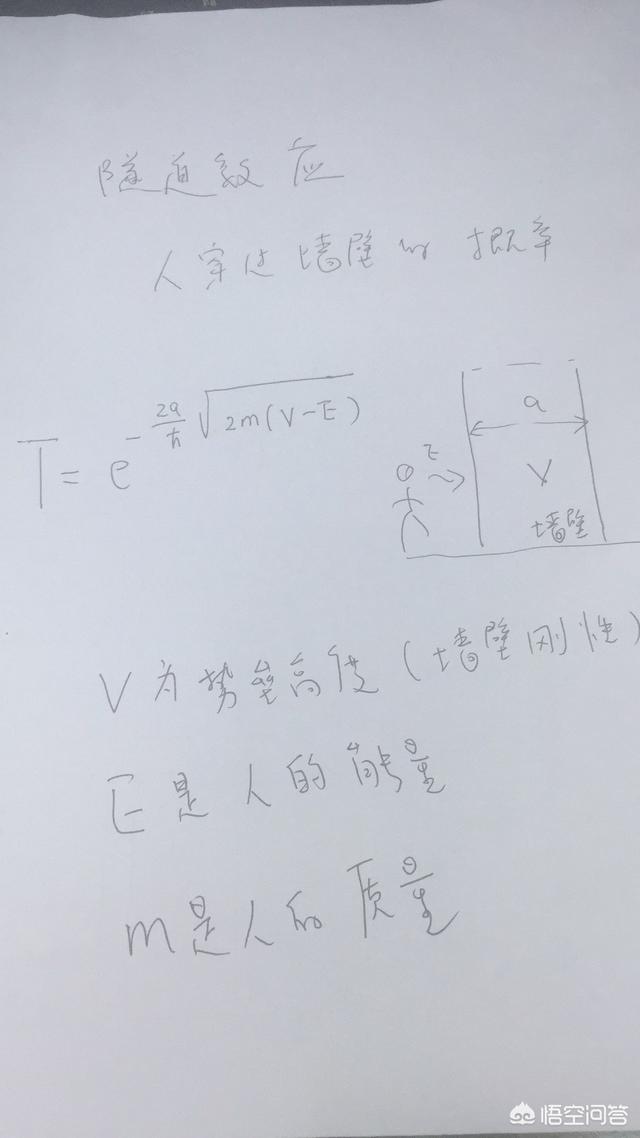 隧道效应
人穿过墙壁的概率
T = e^{-\frac{2a}{ħ}\sqrt{2m(V-E)}}
a
E
V
墙壁
V为势垒高度(墙壁刚性)
E是人的能量
m是人的质量
悟空问答